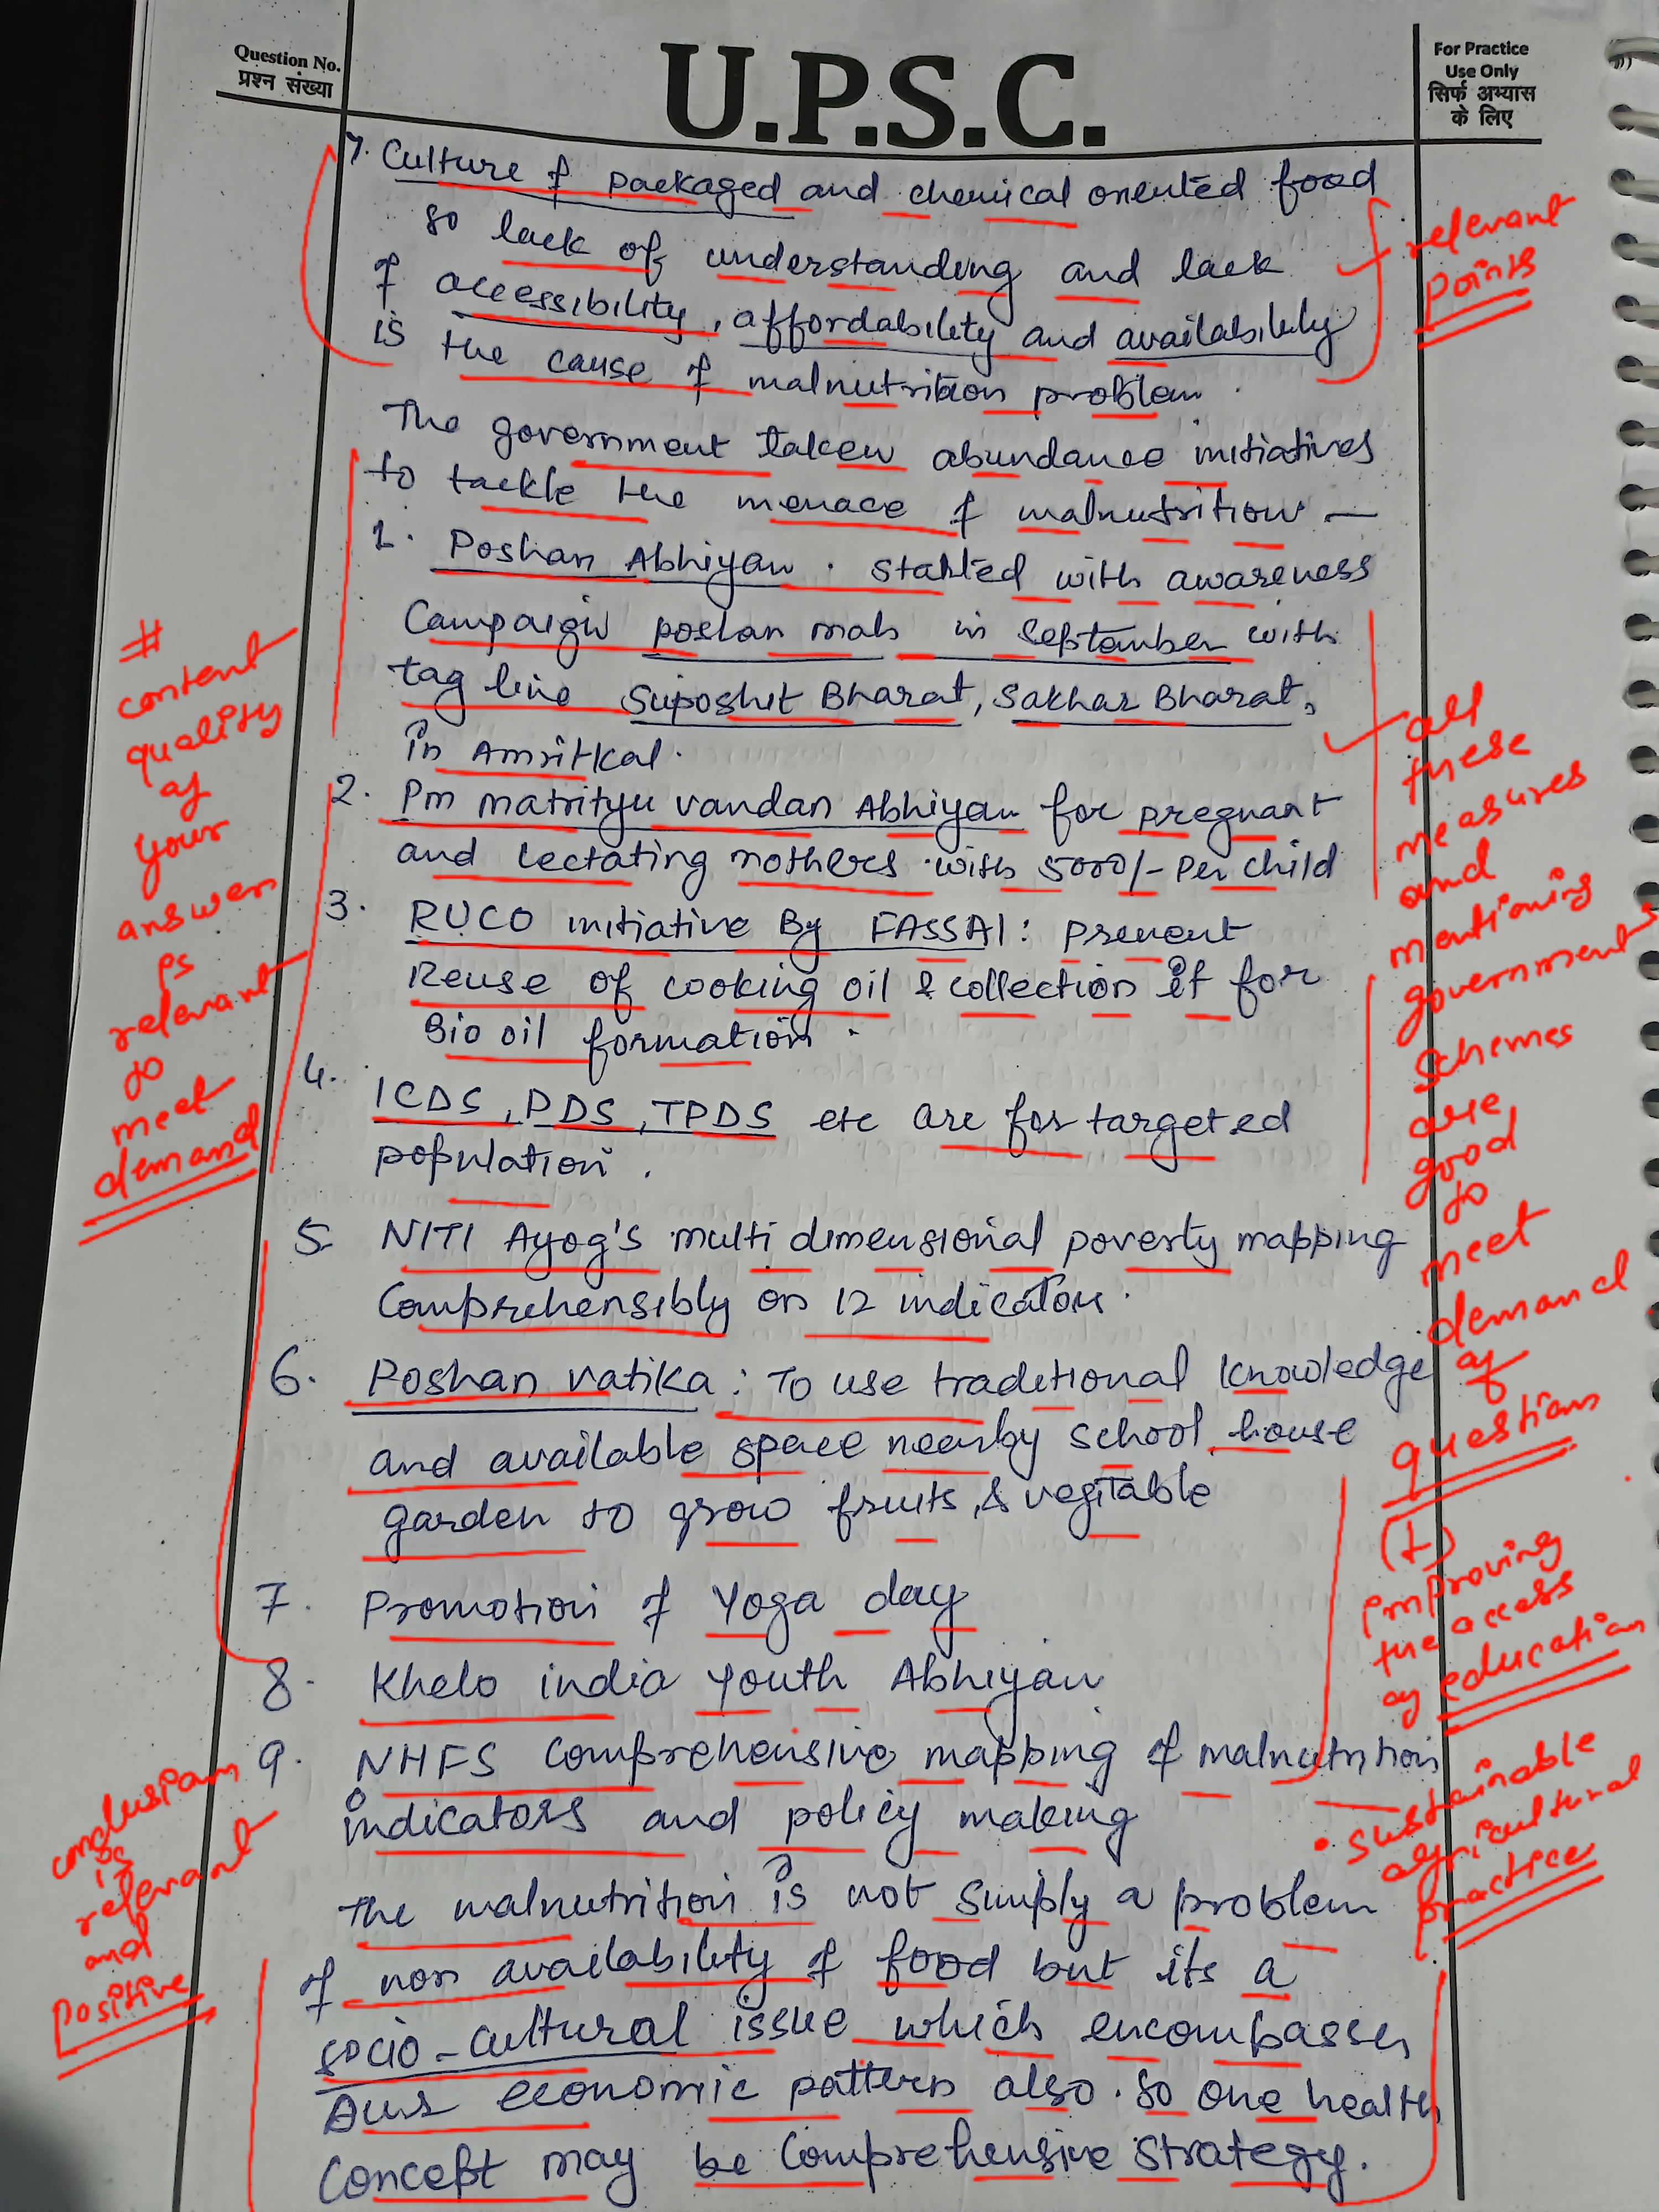 Question No.
प्रश्न संख्या
U.P.S.C.
For Practice
Use Only
सिर्फ अभ्यास
के लिए
7. Culture of packaged and chemical oriented food
so lack of understanding and lack
of accessibility, affordability and availability
is the cause of malnutrition problem.
relevant
points
The government taken abundance initiatives
to tackle the menace of malnutrition —
1. Poshan Abhiyan. Started with awareness
Campaign poshan mah in September with
tag line Suposhit Bharat, Sakhar Bharat,
in Amritkal.
2. Pm matrityu vandan Abhiyan for pregnant
and lectating mothers with 5000/- Per child
3. RUCO initiative By FASSAI: Prevent
Reuse of cooking oil & collection it for
Bio oil formation.
4. ICDS, PDS, TPDS etc are for targeted
population.
5. NITI Ayog's multi dimensional poverty mapping
Comprehensibly on 12 indicators.
6. Poshan vatika: To use traditional knowledge
and available space nearby school, house
garden to grow fruits, & vegitable
7. Promotion of Yoga day
8. Khelo india youth Abhiyan
9. NHFS Comprehensive mapping of malnutrition
indicators and policy making
The malnutrition is not simply a problem
of non availability of food but its a
socio-cultural issue which encompasses
economic pattern also. So one health
Concept may be Comprehensive Strategy.
#
content
quality
of
your
answer
is
relevant
to
meet
demand
all
these
measures
and
mentioning
government
schemes
are
good
to
meet
demand
of
questions
(+)
improving
the access
of education
• sustainable
agricultural
practices
conclusion
is
relevant
and
positive